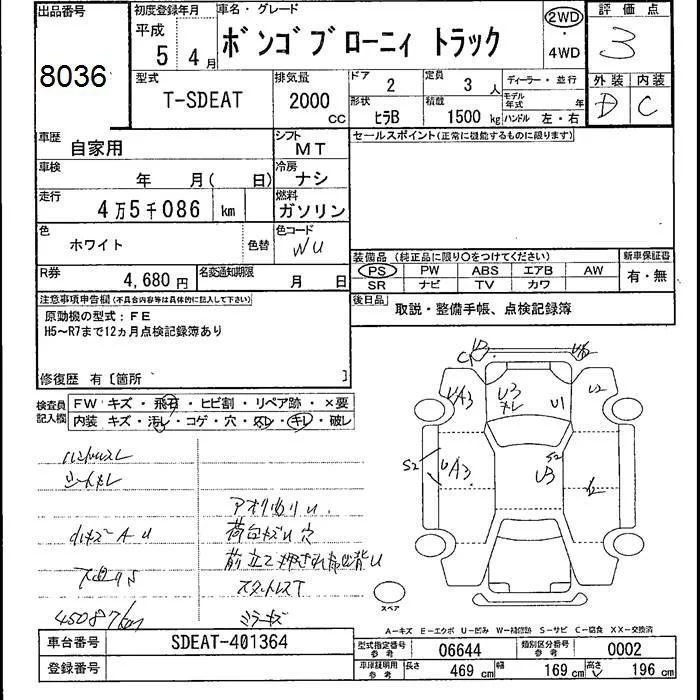 出品番号
8036
初度登録年月
平成
5年 4月
車名・グレード
ボンゴブローニィ トラック
2WD
・
4WD
評価点
3
外装 内装
D C
型式
T-SDEAT
排気量
2000 CC
ドア
2
定員
3人
ディーラー・並行
形状
ヒラB
積載
1500 kg
モデル年式 年
ハンドル 左・右
車歴
自家用
シフト
MT
セールスポイント(正常に機能するものに限ります)
車検
年 月( 日)
冷房
ナシ
走行
4万5千086 km
燃料
ガソリン
色
ホワイト
色替
色コード
WU
装備品 (純正品に限り○をつけてください)
PS PW ABS エアB AW
SR ナビ TV カワ
新車保証書
有・無
R券
4,680円
名変通知期限
月 日
後日品
取説・整備手帳、点検記録簿
注意事項申告欄(不具合内容等は具体的に記入して下さい)
原動機の型式:FE
H5~R7まで12ヵ月点検記録簿あり
修復歴 有[箇所 ]
検査員記入欄
FW キズ・飛石・ヒビ割・リペア跡・×要
内装 キズ・汚レ・コゲ・穴・凹レ・キレ・破レ
ハンドルスレ
シートメレ
AU
45087km
アオリ曲りU.
荷台キズU穴
スタットレスT
ミラーキズ
UA3
U3
U1
U2
S2
UA3
S2
U3
スペア
A-キズ E-エクボ U-凹み W-補修跡 S-サビ C-腐食 XX-交換済
車台番号
SDEAT-401364
登録番号
型式指定番号
参考
06644
類別区分番号
参考
0002
車庫証明用
参考
長さ
469 cm
幅
169 cm
高さ
196 cm